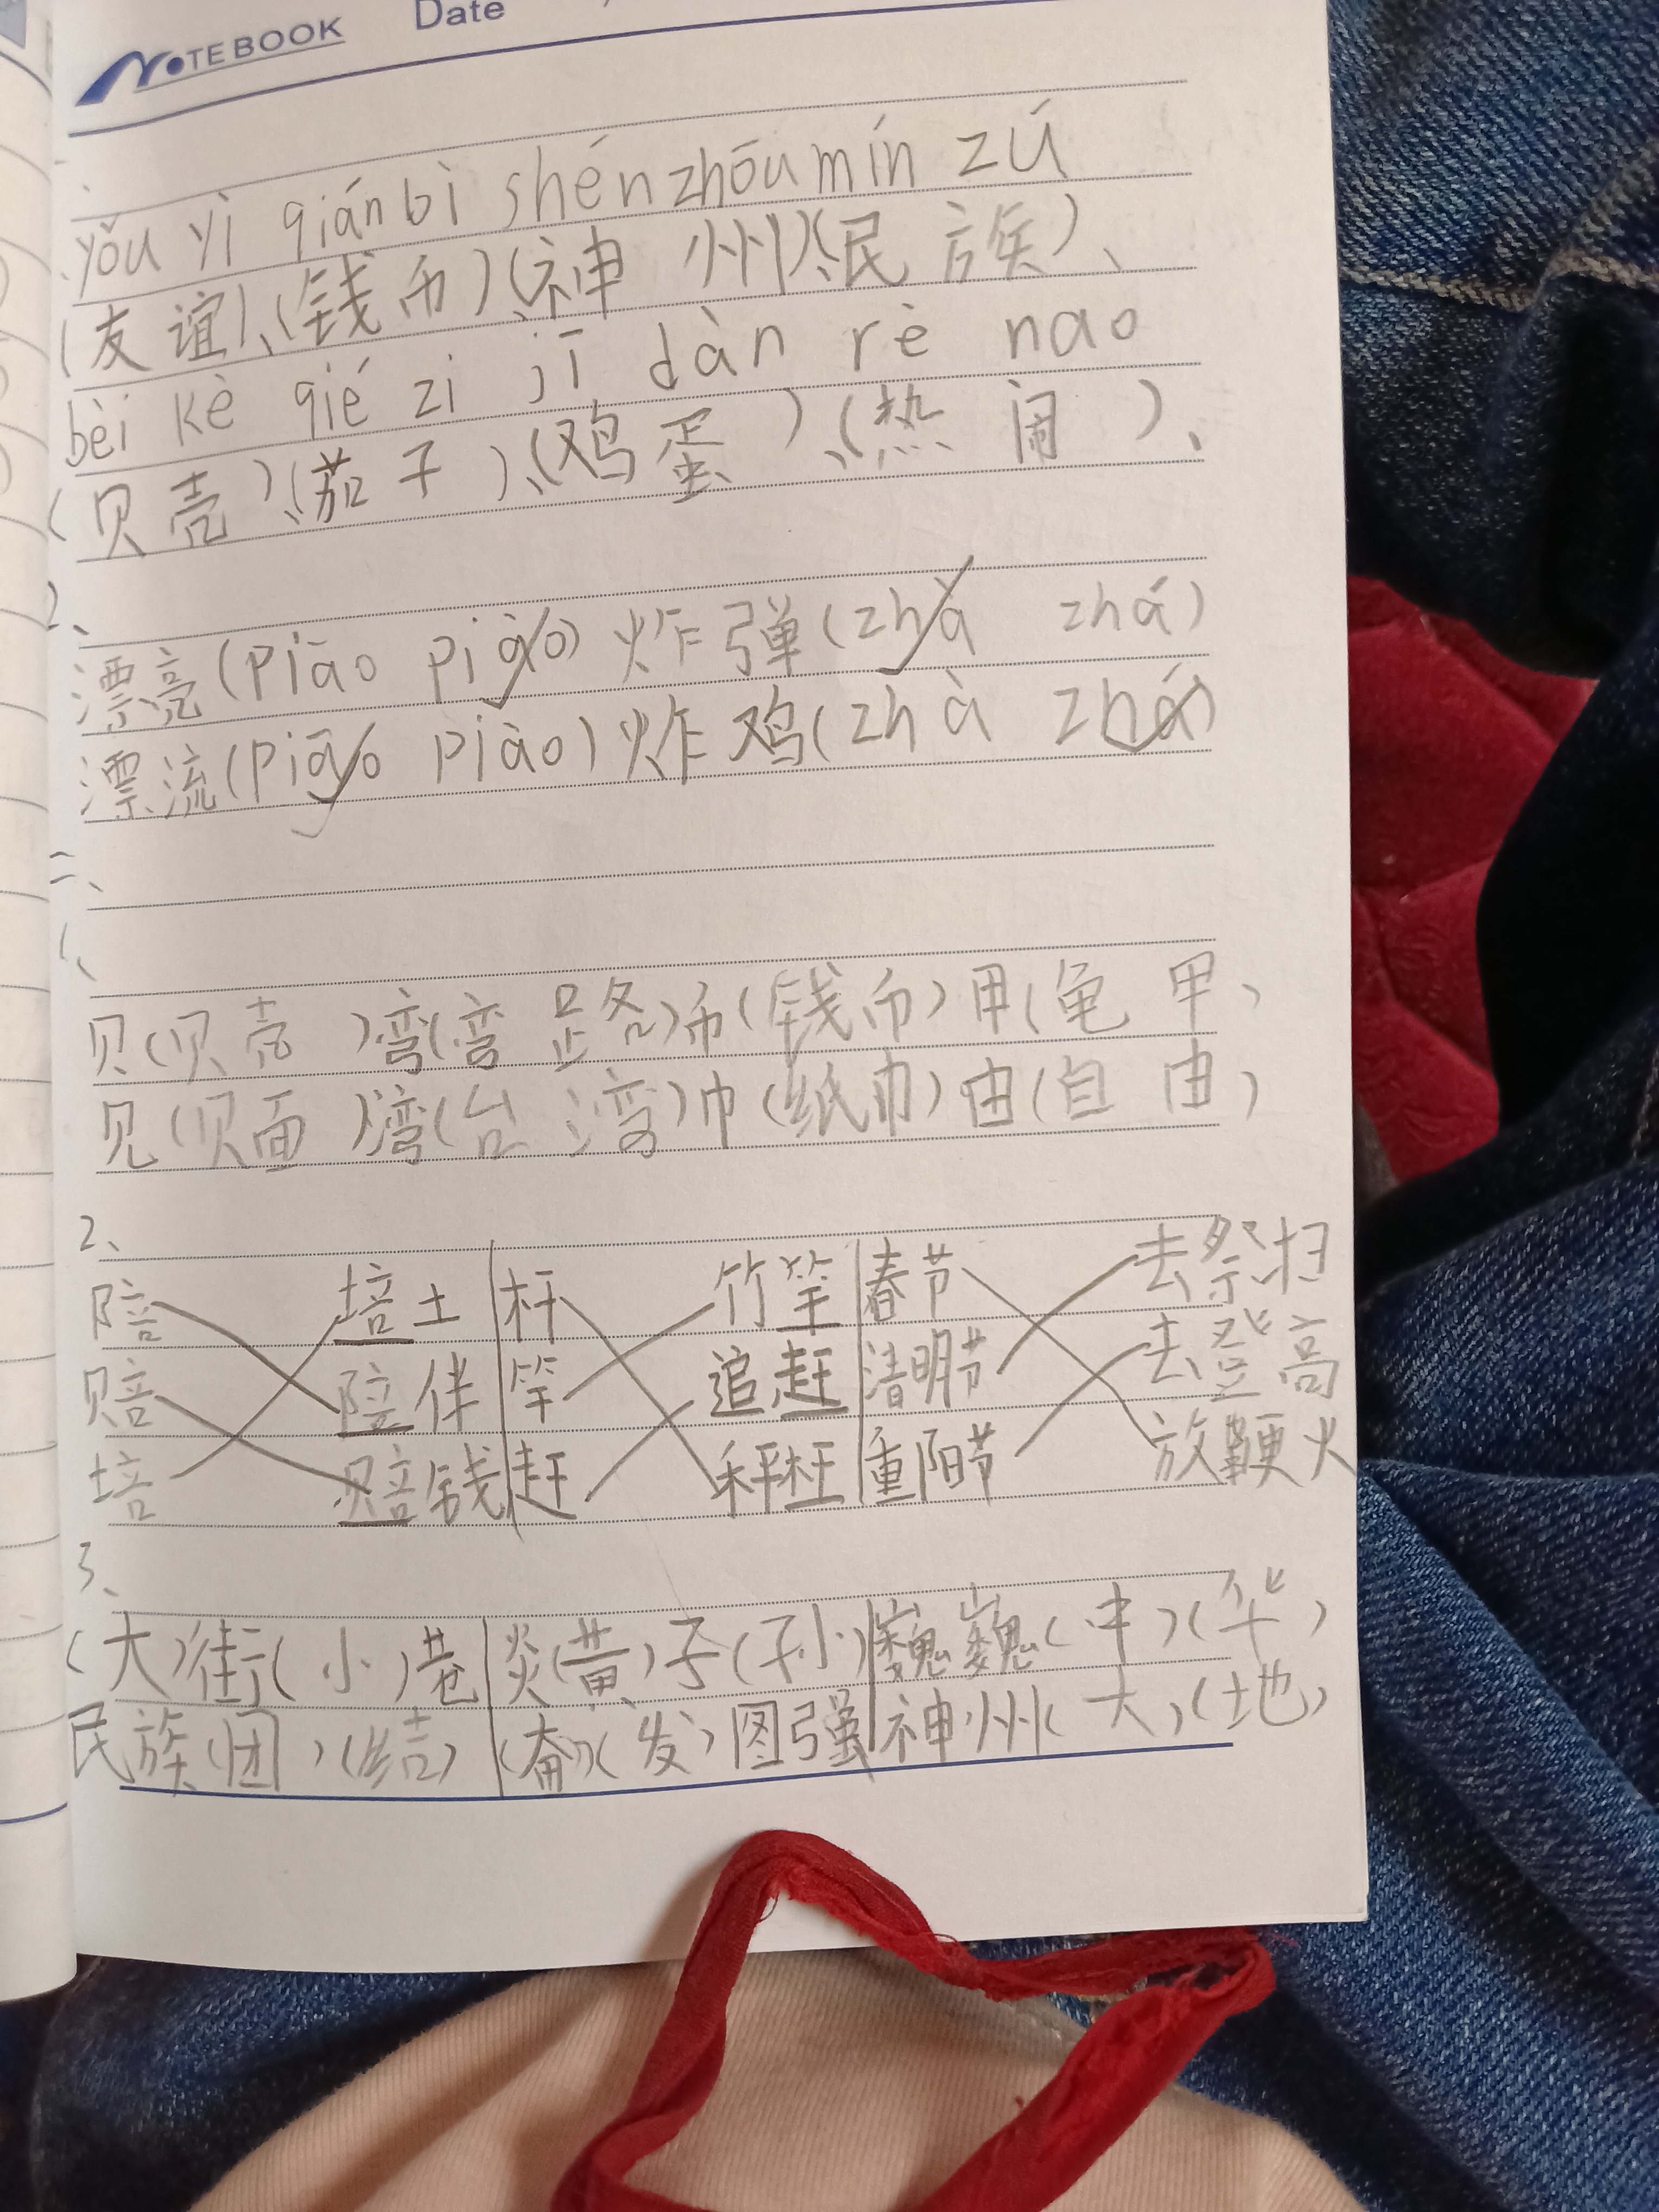 NOTEBOOK Date
一、
yǒu yì qián bì shén zhōu mín zú
(友谊)、(钱币)、(神州)、(民族)、
bèi ké qié zi jī dàn rè nao
(贝壳)、(茄子)、(鸡蛋)、(热闹)、
2、
漂亮(piāo piào) 炸弹(zhà zhá)
漂流(piāo piào) 炸鸡(zhà zhá)
二、
1、
贝(贝壳) 弯(弯路) 币(钱币) 甲(龟甲)
见(见面) 湾(台湾) 巾(纸巾) 由(自由)
2、
陪 培土 杆 竹竿 春节 去祭扫
赔 陪伴 竿 追赶 清明节 去登高
培 赔钱 赶 秤杆 重阳节 放鞭火
3、
(大)街(小)巷 炎(黄)子(孙) 巍巍(中)(华)
民族(团)(结) (奋)(发)图强 神州(大)(地)